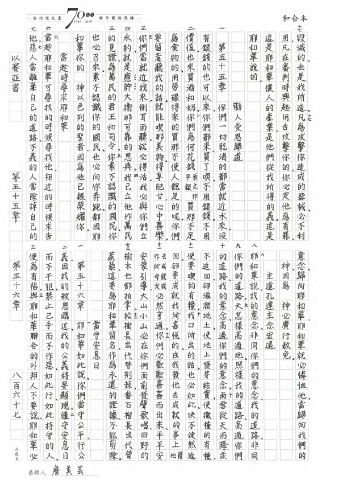 和合本
7000
毀滅的也是我所造凡為攻擊你造成的器械必不利
用凡在審判時興起用舌攻擊你的你必定他為有罪
這是耶和華僕人的產業是他們從我所得的義這是
耶和華說的
勸人受恩歸道
第五十五章 你們一切乾渴的都當就近水來沒
有銀錢的也可以來你們都來買了吃不用銀錢不用
價值也來買酒和奶你們為何花錢買那不足
為食物的用勞碌得來的買那不使人飽足的呢你們
要留意聽我的話就能吃那美物得享肥甘心中喜樂
你們當就近我來側耳而聽就必得活我必與你們立
永約就是應許大衛那可靠的恩典我已立他作萬民
的見證為萬民的君王和司令你素不認識的國民你
也必召來素不認識你的國民也必向你奔跑都因耶
和華你的神以色列的聖者因為他已經榮耀你
當趁時尋求耶和華
六當趁耶和華可尋找的時候尋找他相近的時候求告
七他惡人當離棄自己的道路不義的人當除掉自己的
意念歸向耶和華就必憐恤他當歸向我們的
神因為神必廣行赦免
八耶和華說我的意念非同你們的意念我的道路非同
九你們的道路天怎樣高過地照樣我的道路高過你們
十的道路我的意念高過你們的意念雨雪從天而降並
不返回卻滋潤地土使地上發芽結實使撒種的有種
使要吃的有糧我口所出的話也必如此決不徒然返
回卻要成就我所喜悅的在我發他去成就的事上
必然亨通你們必歡歡喜喜而出來平平安
安蒙引導大山小山必在你們面前發聲歌唱田野的
樹木也都拍掌松樹長出代替荊棘番石榴長出代替
蒺藜這要為耶和華留名作為永遠的證據不能剪除
當守安息日
第五十六章 耶和華如此說你們當守公平行公
義因我的救恩臨近我的公義將要顯現謹守安息日
而不干犯禁止己手而不作惡如此行如此持守的人
便為有福與耶和華聯合的外邦人不要說耶和華必
以賽亞書
第五十五章
第五十六章
八百六十七
謄錄人 廖美芸